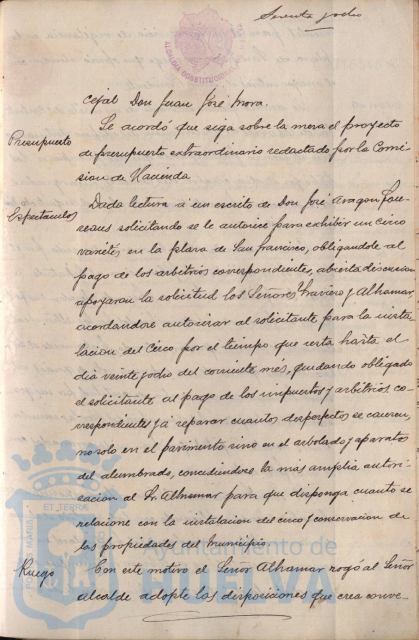 Sesenta y ocho
ALCALDIA CONSTITUCIONAL
cejal Don Juan José Mora.
Presupuesto
Se acordó que siga sobre la mesa el proyecto
de presupuesto extraordinario redactado por la Comi-
sion de Hacienda
Espectaculos
Dada lectura á un escrito de Don José Aragon
solicitando se le autorice para exhibir un circo
varietés en la plaza de San Francisco, obligandole al
pago de los arbitrios correspondiente, abierta discusion
apoyaron la solicitud los Señores y Alhamar,
acordandose autorizar al solicitante para la insta
lacion del Circo por el tiempo que resta hasta el
dia veinte y ocho del corriente mes, quedando obligado
el solicitante al pago de los impuestos y arbitrios co
rrespondientes y á reparar cuantos desperfectos se causen,
no solo en el pavimento sino en el arbolado y aparatos
del alumbrado, concediendose la más amplia autori-
sacion al Sr. Alhamar para que disponga cuanto se
relacione con la instalacion del circo y conservacion de
las propiedades del municipio
Ruego
Con este motivo el Señor Alhamar rogó al Señor
alcalde adopte las disposiciones que crea conve-
PORTUS MARIS
ET TERRÆ
Ayuntamiento de
HUELVA